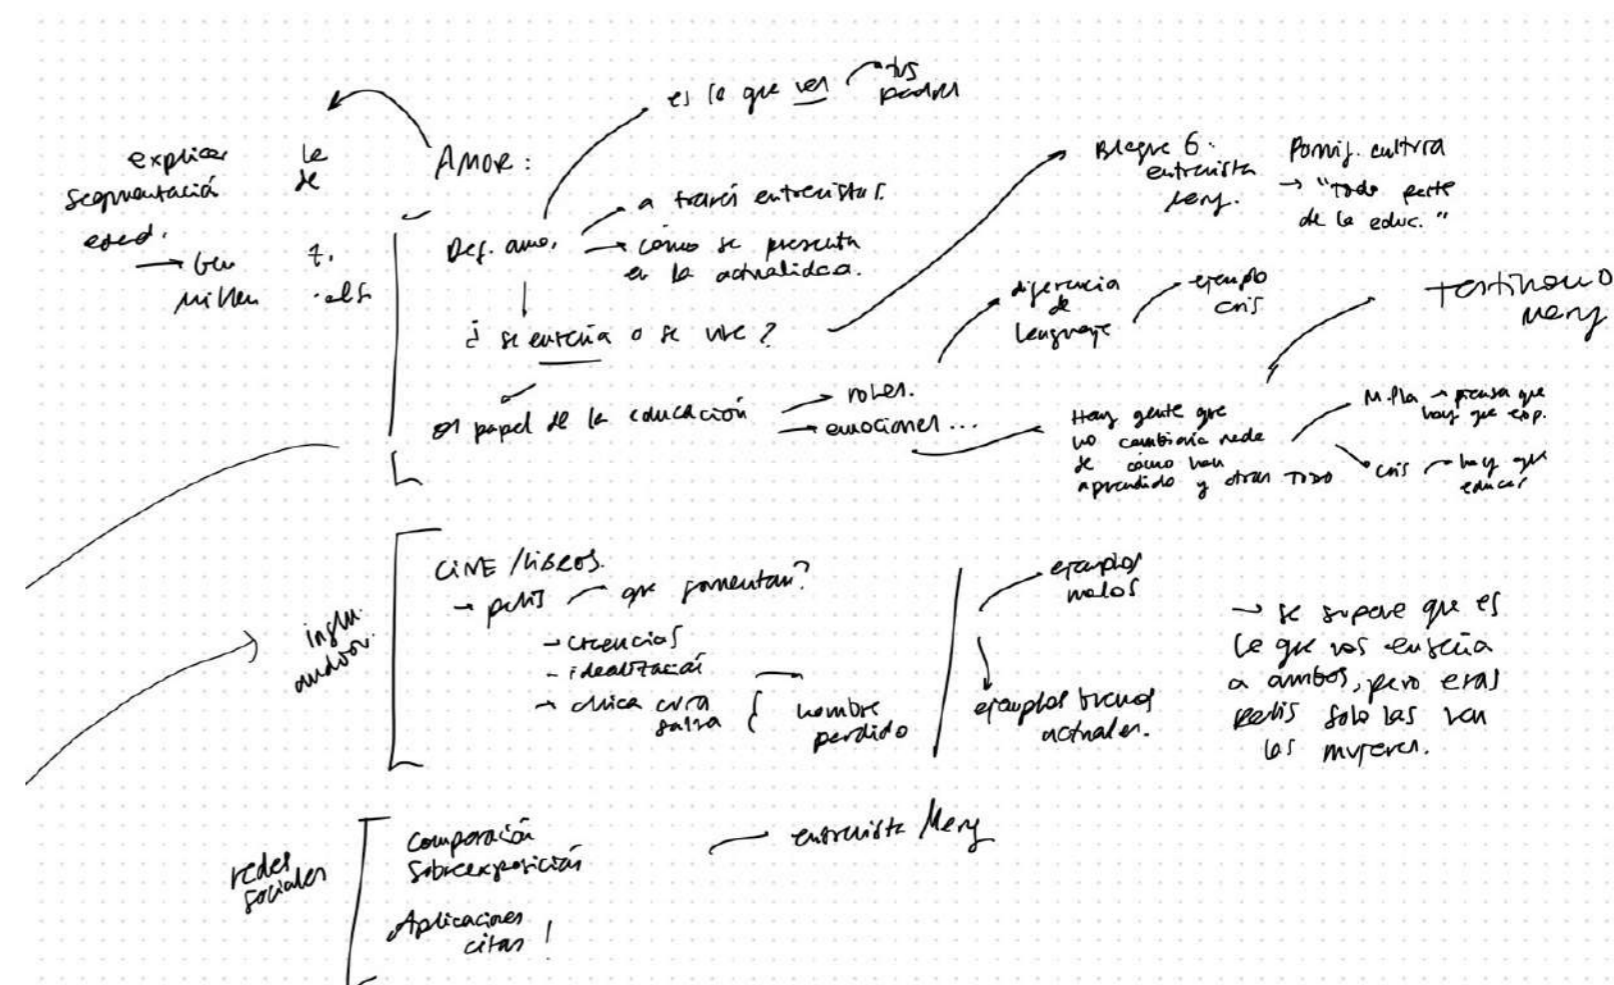 es lo que ven tus
padres
explicar la
segmentación de
edad.
→ Gen Z.
Millen ials
AMOR:
Def. amor.
→ a través entrevistas.
→ cómo se presenta
en la actualidad.
¿se enseña o se vive?
el papel de la educación
→ roles.
→ emociones...
Bloque 6:
entrevista
Mery.
cultura
→ "Todo parte
de la educ."
diferencia
de
lenguaje
ejemplo
cris
testimonio
Mery
Hay gente que
no cambiaría nada
de cómo han
aprendido y otras TODO
M. Pla → piensa que
hay que exp.
cris hay que
educar
CINE / LIBROS.
→ pelis que fomentan?
- creencias
- idealización
→ chica cura
salva { hombre
perdido
ejemplos
malos
ejemplos buenos
actuales.
→ se supone que es
lo que nos enseña
a ambos, pero esas
pelis solo las ven
las mujeres.
redes
sociales
Comparación
Sobreexposición
entrevista Mery
Aplicaciones
citas !